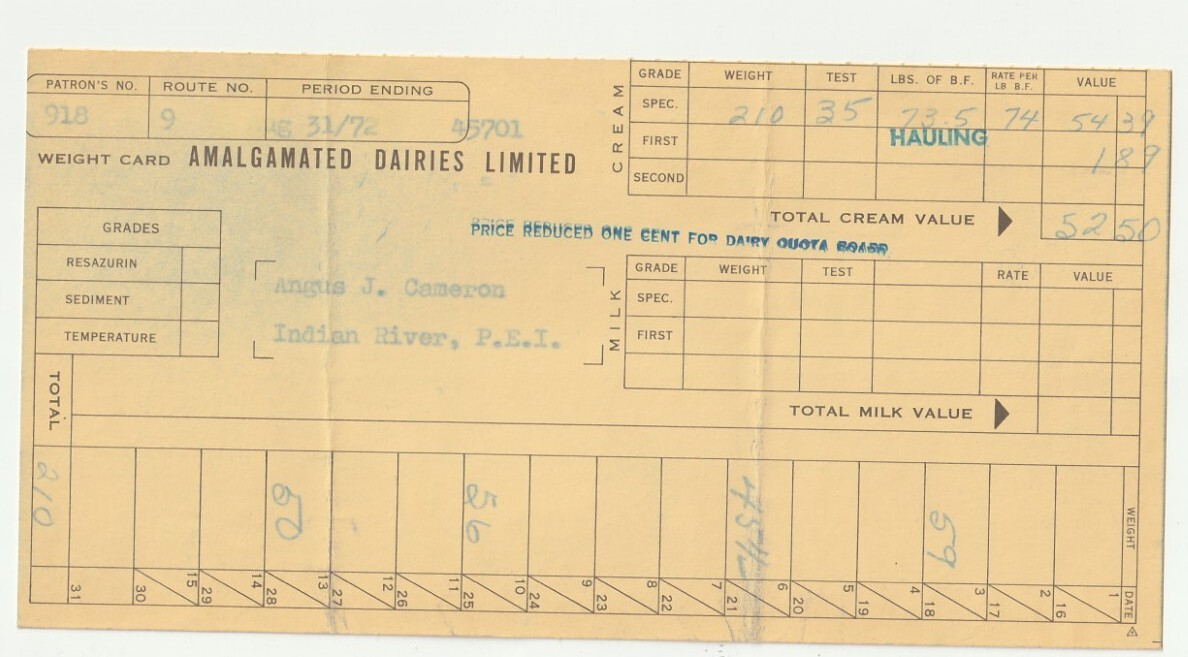 PATRON'S NO. ROUTE NO. PERIOD ENDING
918 9 31/72 45701
WEIGHT CARD AMALGAMATED DAIRIES LIMITED
GRADES
RESAZURIN
SEDIMENT
TEMPERATURE
Angus J. Cameron
Indian River, P.E.I.
CREAM
GRADE WEIGHT TEST LBS. OF B.F. RATE PER LB B.F. VALUE
SPEC. 210 35 73.5 74 54 39
FIRST HAULING 1 89
SECOND
TOTAL CREAM VALUE 52 50
PRICE REDUCED ONE CENT FOR DAIRY QUOTA BOARD
MILK
GRADE WEIGHT TEST RATE VALUE
SPEC.
FIRST
TOTAL MILK VALUE
TOTAL
210 50 56 59 WEIGHT
31 30 15 29 14 28 13 27 12 26 11 25 10 24 9 23 8 22 7 21 6 20 5 19 4 18 3 17 2 16 1 DATE